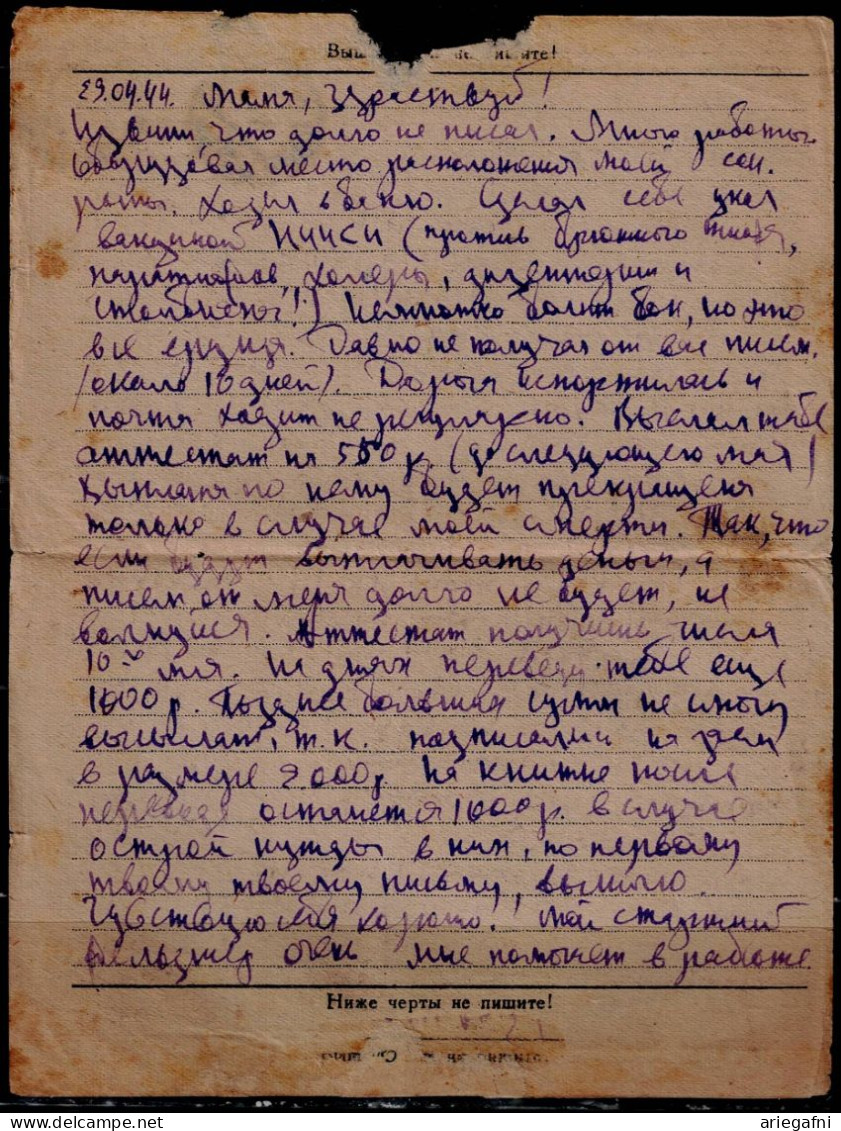 29.04.44. Мама, здравствуй!
Извини, что долго не писал. Много работы.
Оборудовал место расположения моей сан.
роты. Ходил в баню. Сделал себе укол
вакциной НИИСИ (против брюшного тифа,
паратифов, холеры, дизентерии и
столбняка!) Немножко болит бок, но это
все ерунда. Давно не получал от вас писем.
(около 10 дней). Дорога испортилась и
почта ходит не регулярно. Выслал тебе
аттестат на 550 р. (до следующего мая)
Выплата по нему будет прекращена
только в случае моей смерти. Так, что
если будут выплачивать деньги, а
писем от меня долго не будет, не
волнуйся. Аттестат получишь числа
10го мая. На днях переведу тебе еще
1000 р. Позднее большая сумм не смогу
высылать, т.к. подписался на заем
в размере 2.000р На книжке после
перевода останется 1000р. в случае
острой нужды в них, по первому
твоему твоему письму, вышлю.
Чувствую себя хорошо. Мой старший
фельдшер очень мне помогает в работе.
Ниже черты не пишите!
www.delcampe.net
ariegafni